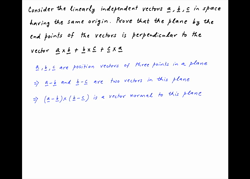 Consider the linearly independent vectors a, b, c in space
having the same origin. Prove that the plane by the
end points of the vectors is perpendicular to the
vector a x b + b x c + c x a
a, b, c are position vectors of three points in a plane
⇒ a-b and b-c are two vectors in this plane
⇒ (a-b)x(b-c) is a vector normal to this plane